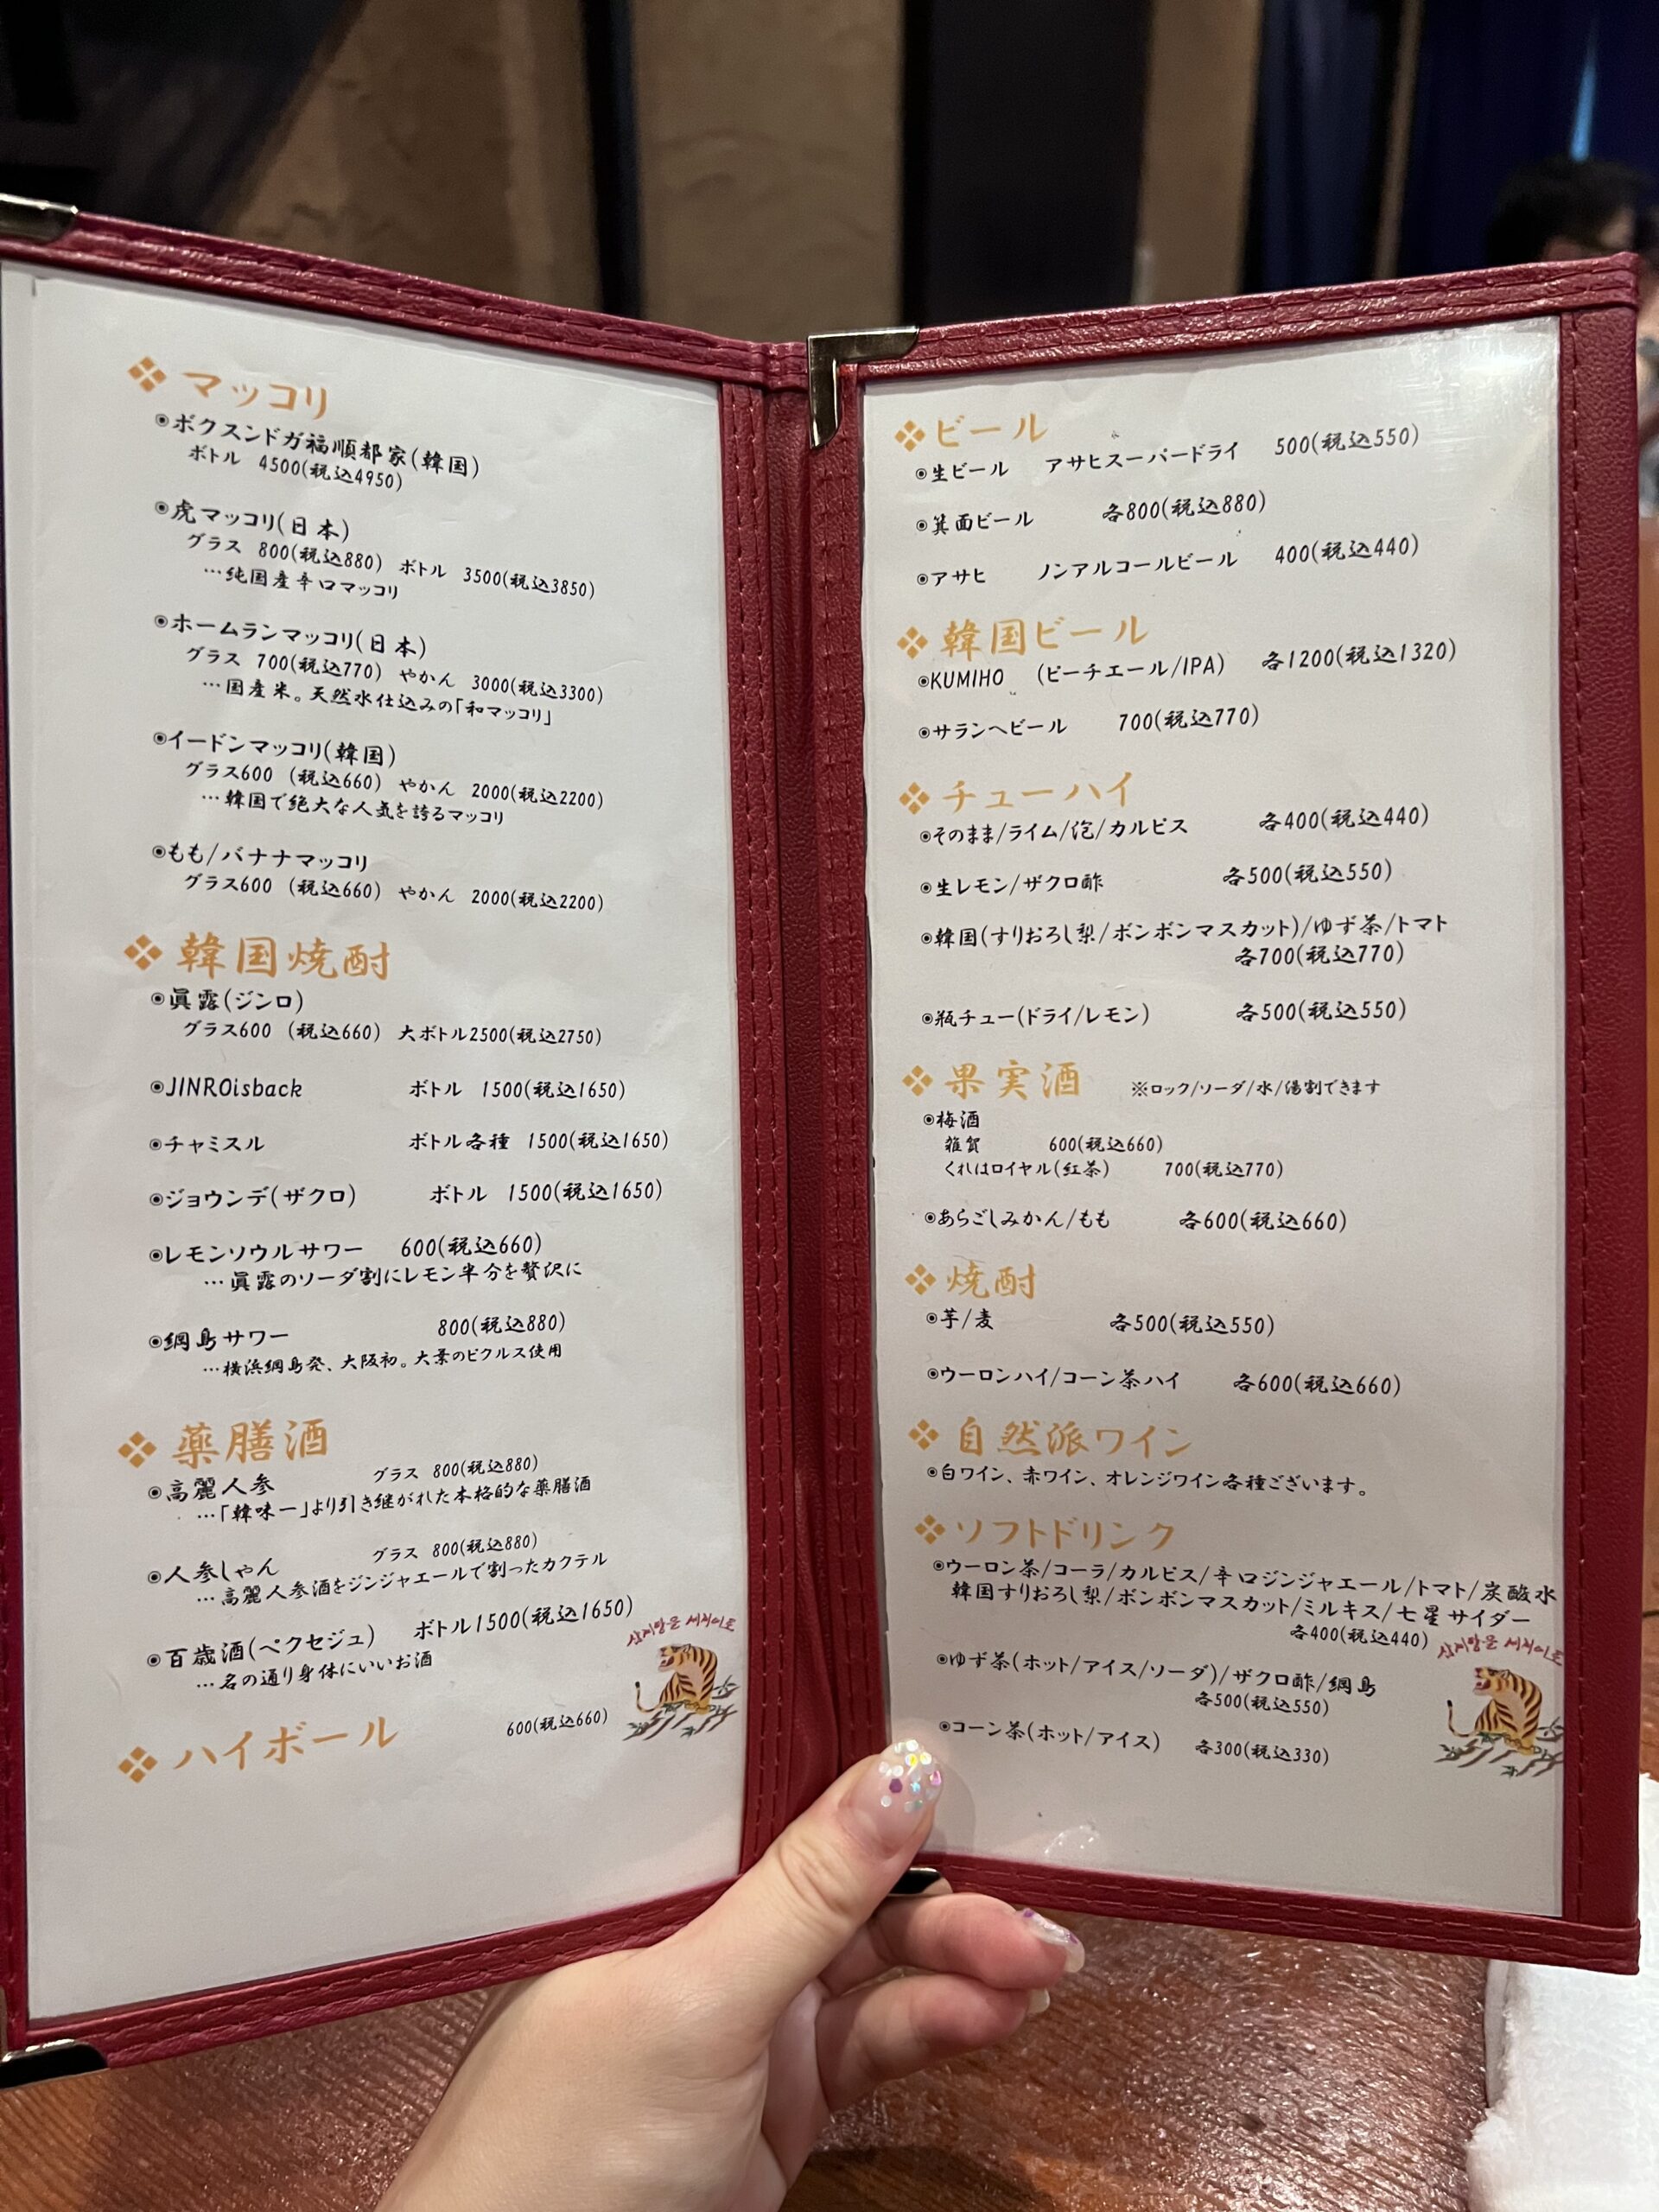 マッコリ
◉ボクスンドガ福順都家(韓国)
ボトル 4500(税込4950)
◉虎マッコリ(日本)
グラス 800(税込880) ボトル 3500(税込3850)
…純国産辛口マッコリ
◉ホームランマッコリ(日本)
グラス 700(税込770) やかん 3000(税込3300)
…国産米。天然水仕込みの「和マッコリ」
◉イードンマッコリ(韓国)
グラス600 (税込660) やかん 2000(税込2200)
…韓国で絶大な人気を誇るマッコリ
◉もも/バナナマッコリ
グラス600 (税込660) やかん 2000(税込2200)
韓国焼酎
◉眞露(ジンロ)
グラス600 (税込660) 大ボトル2500(税込2750)
◉JINROisback ボトル 1500(税込1650)
◉チャミスル ボトル各種 1500(税込1650)
◉ジョウンデ(ザクロ) ボトル 1500(税込1650)
◉レモンソウルサワー 600(税込660)
…眞露のソーダ割にレモン半分を贅沢に
◉綱島サワー 800(税込880)
…横浜綱島発、大阪初。大葉のピクルス使用
薬膳酒
◉高麗人参 グラス 800(税込880)
…「韓味一」より引き継がれた本格的な薬膳酒
◉人参しゃん グラス 800(税込880)
…高麗人参酒をジンジャエールで割ったカクテル
◉百歳酒(ペクセジュ) ボトル1500(税込1650)
…名の通り身体にいいお酒
ハイボール 600(税込660)
ビール
◉生ビール アサヒスーパードライ 500(税込550)
◉箕面ビール 各800(税込880)
◉アサヒ ノンアルコールビール 400(税込440)
韓国ビール
◉KUMIHO (ピーチエール/IPA) 各1200(税込1320)
◉サランヘビール 700(税込770)
チューハイ
◉そのまま/ライム/泡/カルピス 各400(税込440)
◉生レモン/ザクロ酢 各500(税込550)
◉韓国(すりおろし梨/ボンボンマスカット)/ゆず茶/トマト
各700(税込770)
◉瓶チュー(ドライ/レモン) 各500(税込550)
果実酒 ※ロック/ソーダ/水/湯割できます
◉梅酒
雑賀 600(税込660)
くれはロイヤル(紅茶) 700(税込770)
◉あらごしみかん/もも 各600(税込660)
焼酎
◉芋/麦 各500(税込550)
◉ウーロンハイ/コーン茶ハイ 各600(税込660)
自然派ワイン
◉白ワイン、赤ワイン、オレンジワイン各種ございます。
ソフトドリンク
◉ウーロン茶/コーラ/カルピス/辛口ジンジャエール/トマト/炭酸水
韓国すりおろし梨/ボンボンマスカット/ミルキス/七星サイダー
各400(税込440)
◉ゆず茶(ホット/アイス/ソーダ)/ザクロ酢/綱島
各500(税込550)
◉コーン茶(ホット/アイス) 各300(税込330)